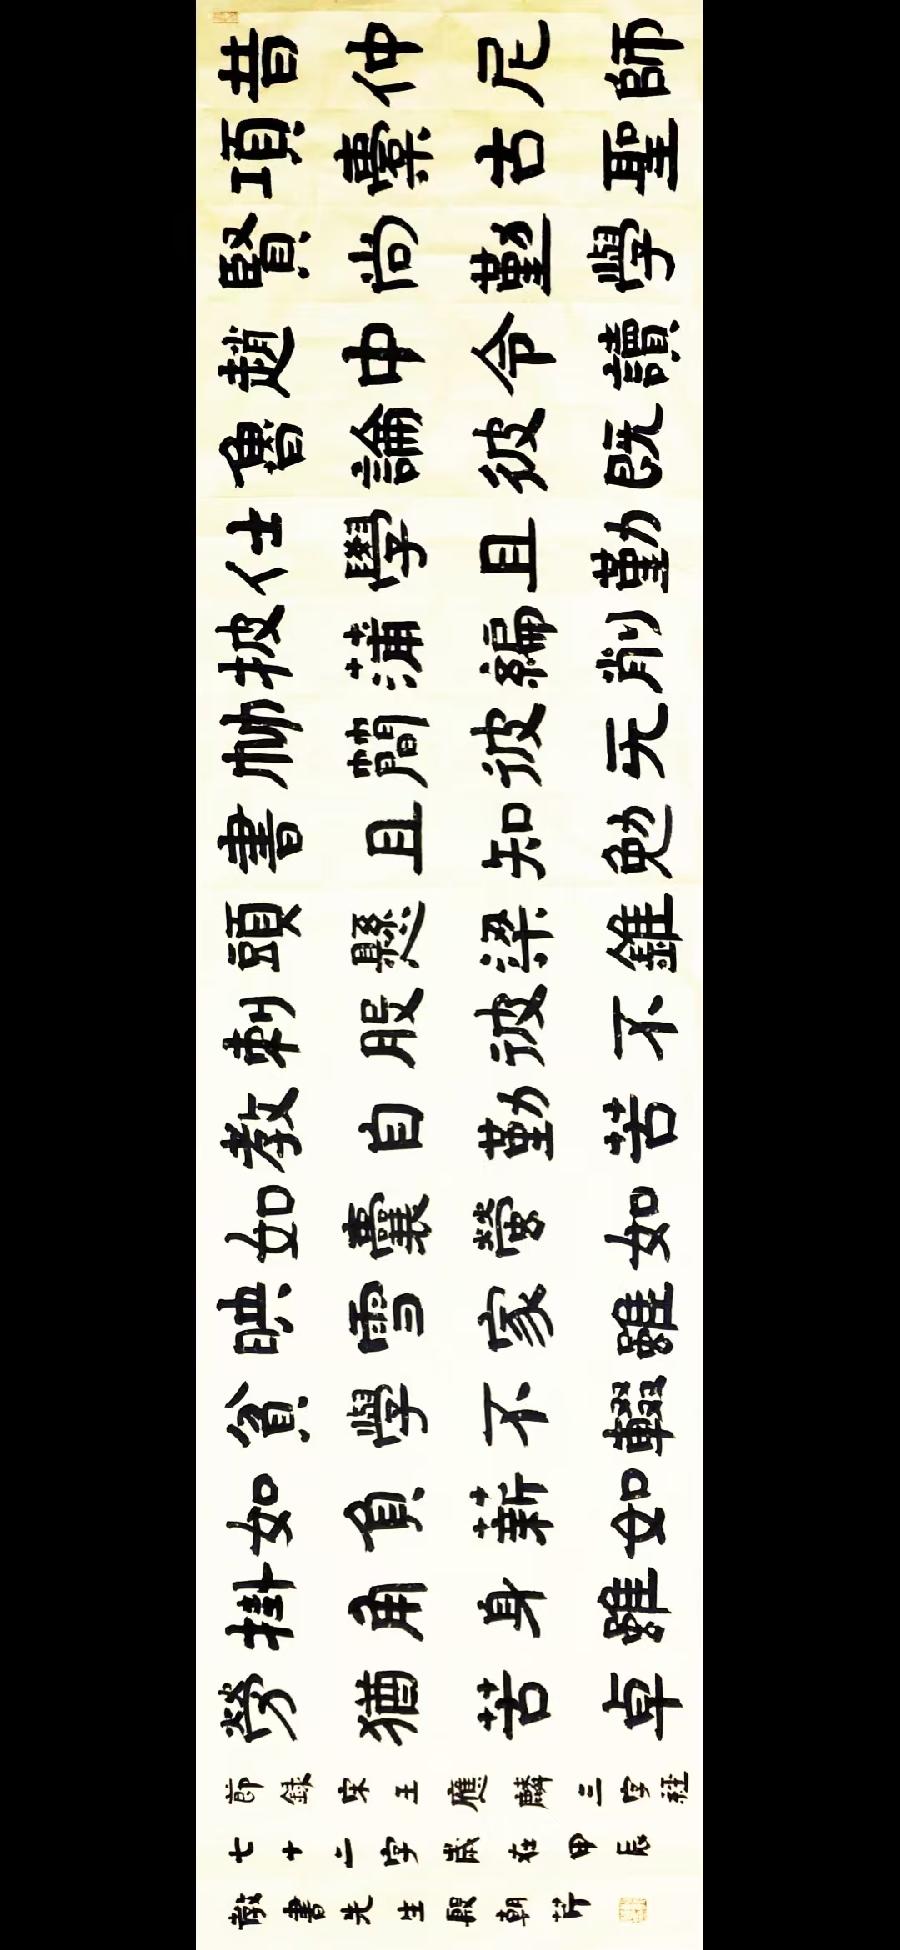 昔仲尼師
項橐古聖
賢尚勤學
趙中令讀
魯論彼既
仕學且勤
披蒲編削
竹簡彼无
書且知勉
頭懸梁錐
刺股彼不
教自勤苦
如囊螢如
映雪家雖
貧學不輟
如負薪如
掛角身雖
勞猶苦卓
節錄宋王應麟三字經
七十二字歲在甲辰
散書先生殷朝芹